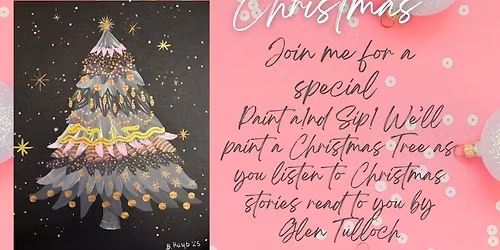 Christmas
Join me for a
special
Paint a1nd Sip! We'll
paint a Christmas Tree as
you listen to Christmas
stories read to you by
Glen Tulloch